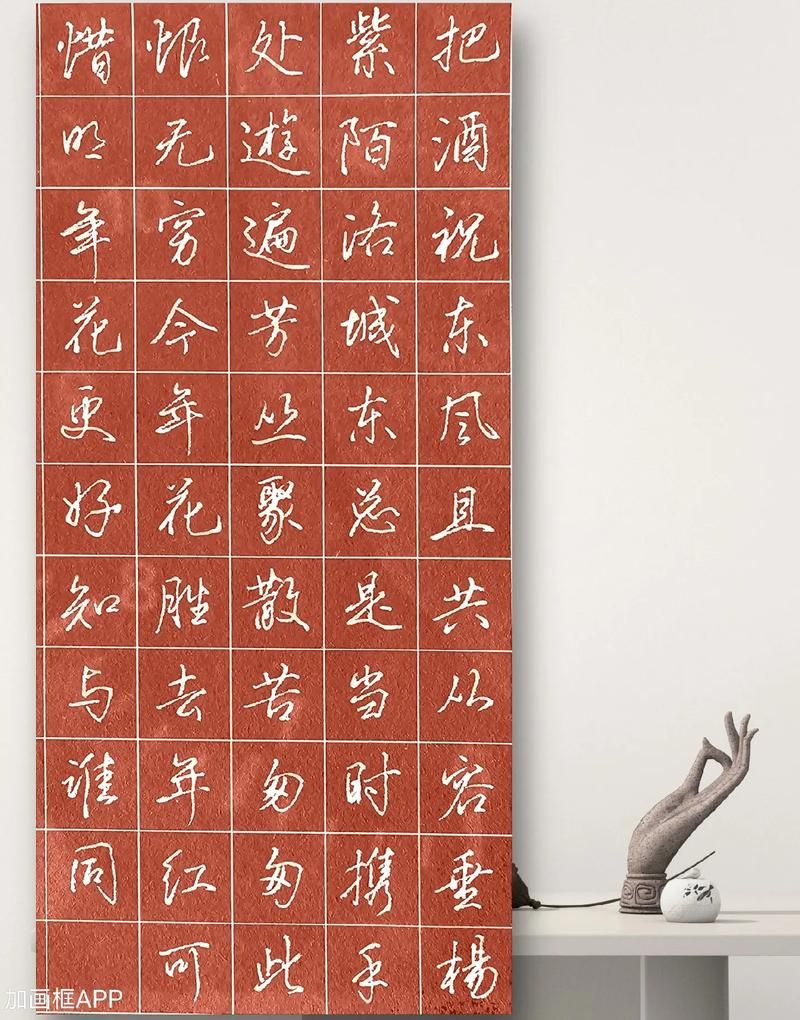 把酒祝东风且共从容垂楊
紫陌洛城东总是当时携手
处遊遍芳丛聚散苦匆匆此
恨无穷今年花胜去年红可
惜明年花更好知与谁同
加画框APP